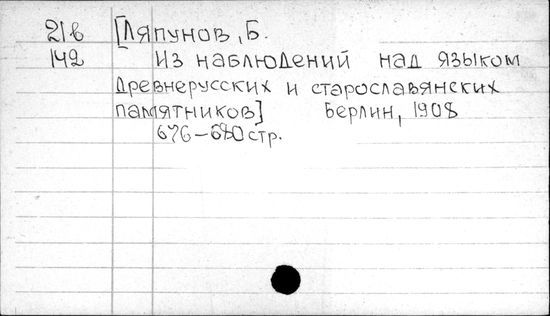 21в [Ляпунов, Б.
142 Из наблюдений над языком
древнерусских и старославянских
памятников] Берлин, 1908
676-680 стр.